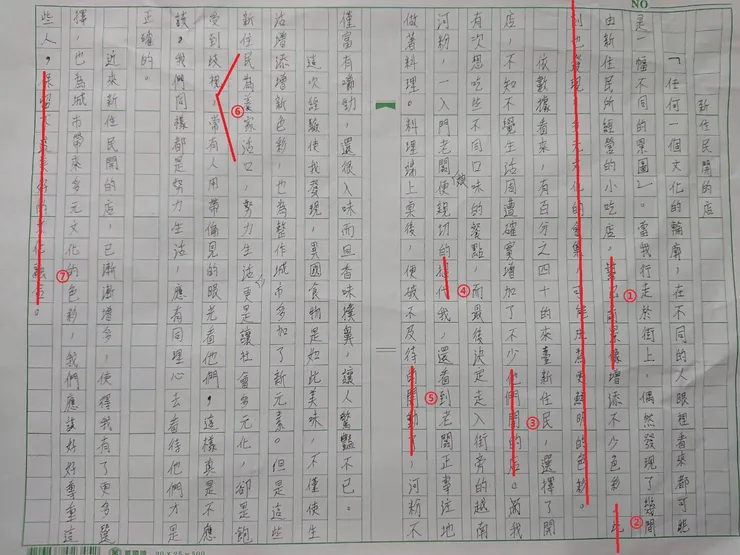 NO
新住民開的店
「任何一個文化的輪廓,在不同的人眼裡看來都可能
是一幅不同的景圖」。當我行走於街上,偶然發現了幾間
由新住民所經營的小吃店,景像增添不少色彩。此 ① ②
刻也發現,多元文化的匯集,可能成為更鮮明的色彩。
依數據看來,有百分之四十的來臺新住民,選擇了開
店,不知不覺生活周遭確實增加了不少他們開的店。而我 ③
有次想吃些不同口味的餐點,而最後決定走入街旁的越南
河粉,一入門老闆便親切的招待我,還看到老闆正專注地 ④
做著料理。料理端上桌後,便破不及待的開動了,河粉不 ⑤
僅富有嚼勁,還很入味而且香味撲鼻,讓人驚豔不已。
這次經驗使我發現,異國食物是如此美味,不僅使生
活增添增新色彩,也為整作城市多加了新元素。但是這些
新住民為養家活口,努力生活更是讓社會多元化,卻是飽 ⑥
受到歧視,常有人用帶偏見的眼光看他們,這樣真是不應
該,我們同樣都是努力生活,應有同理心去看待他們才是
正確的。
近來新住民開的店,已漸漸增多,使得我有了更多選
擇,也為城市帶來多元文化的色彩,我們應該好好尊重這 ⑦
些人,保留下這美好的文化融合。
20×25=500